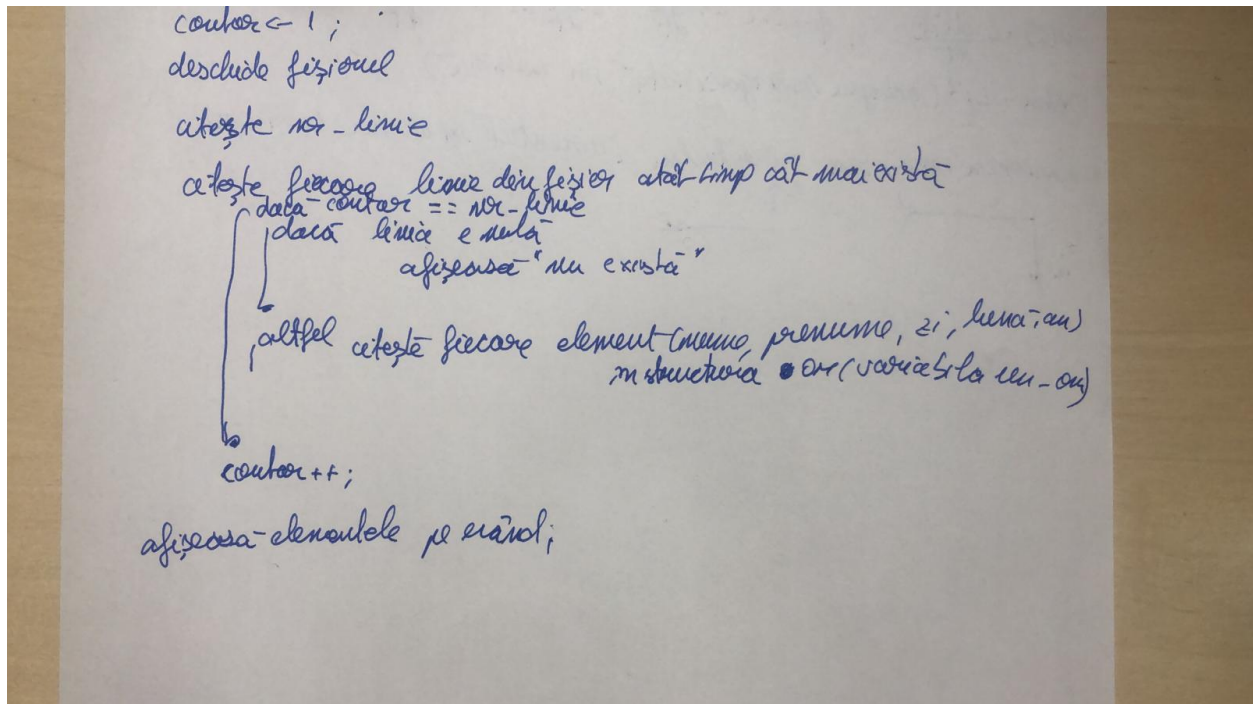 contor <- 1;
deschide fișierul
citește nr_linie
citește fiecare linie din fișier atât timp cât mai există
dacă contor == nr_linie
dacă linia e nulă
afișează "nu există"
altfel citește fiecare element (nume, prenume, zi, lună, an)
în structura om (variabila un_om)
contor++;
afișează elementele pe rând;